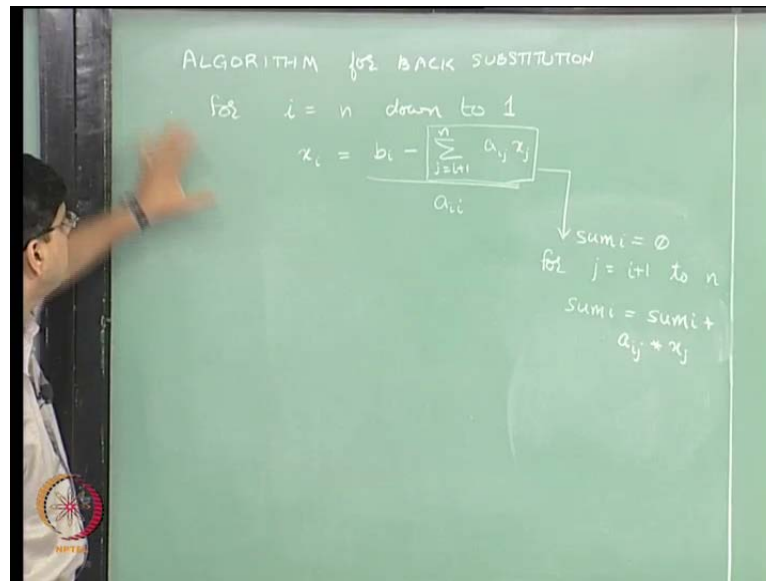 ALGORITHM for BACK SUBSTITUTION
for i = n down to 1
x_i = (b_i - Σ_{j=i+1}^{n} a_{ij} x_j) / a_{ii}
sumi = 0
for j = i+1 to n
sumi = sumi +
a_{ij} * x_j
NPTEL